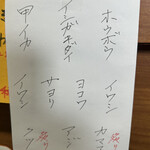 ホウボウ
イシガキダイ
甲イカ
イワシ
ヨコワ
サヨリ
イワシ
炙り
カマス
アジ
炙り